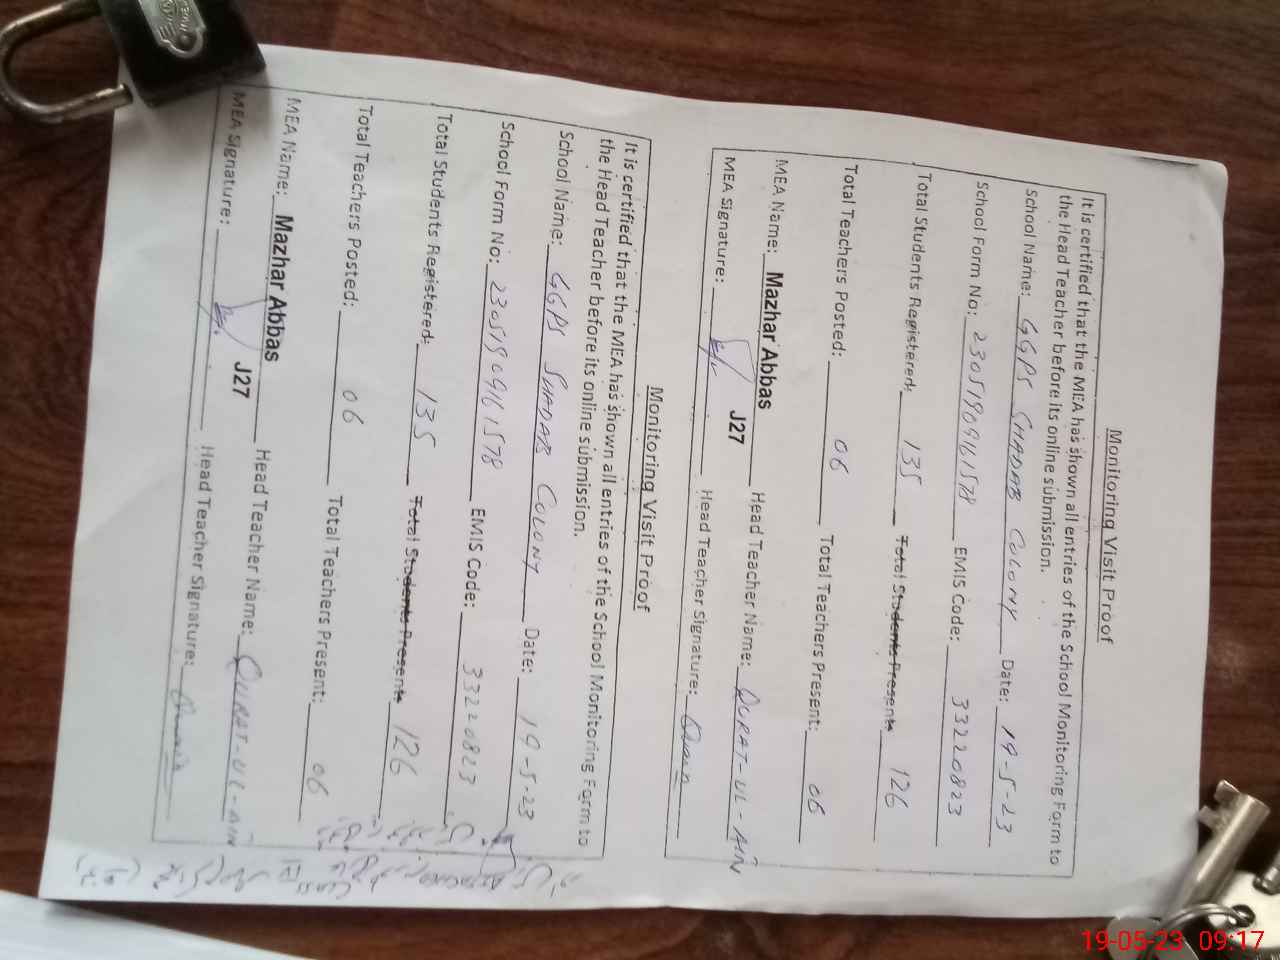 Monitoring Visit Proof
It is certified that the MEA has shown all entries of the School Monitoring Form to
the Head Teacher before its online submission.
School Name: GGPS SHADAB COLONY Date: 19-5-23
School Form No: 2305190961578 EMIS Code: 33220823
Total Students Registered: 135 Total Students Present 126
Total Teachers Posted: 06 Total Teachers Present: 06
MEA Name: Mazhar Abbas Head Teacher Name: QURAT-UL-AIN
J27
MEA Signature: Head Teacher Signature:
Monitoring Visit Proof
It is certified that the MEA has shown all entries of the School Monitoring Form to
the Head Teacher before its online submission.
School Name: GGPS SHADAB COLONY Date: 19-5-23
School Form No: 2305190961578 EMIS Code: 33220823
Total Students Registered: 135 Total Students Present 126
Total Teachers Posted: 06 Total Teachers Present: 06
MEA Name: Mazhar Abbas Head Teacher Name: QURAT-UL-AIN
J27
MEA Signature: Head Teacher Signature:
19-05-23 09:17